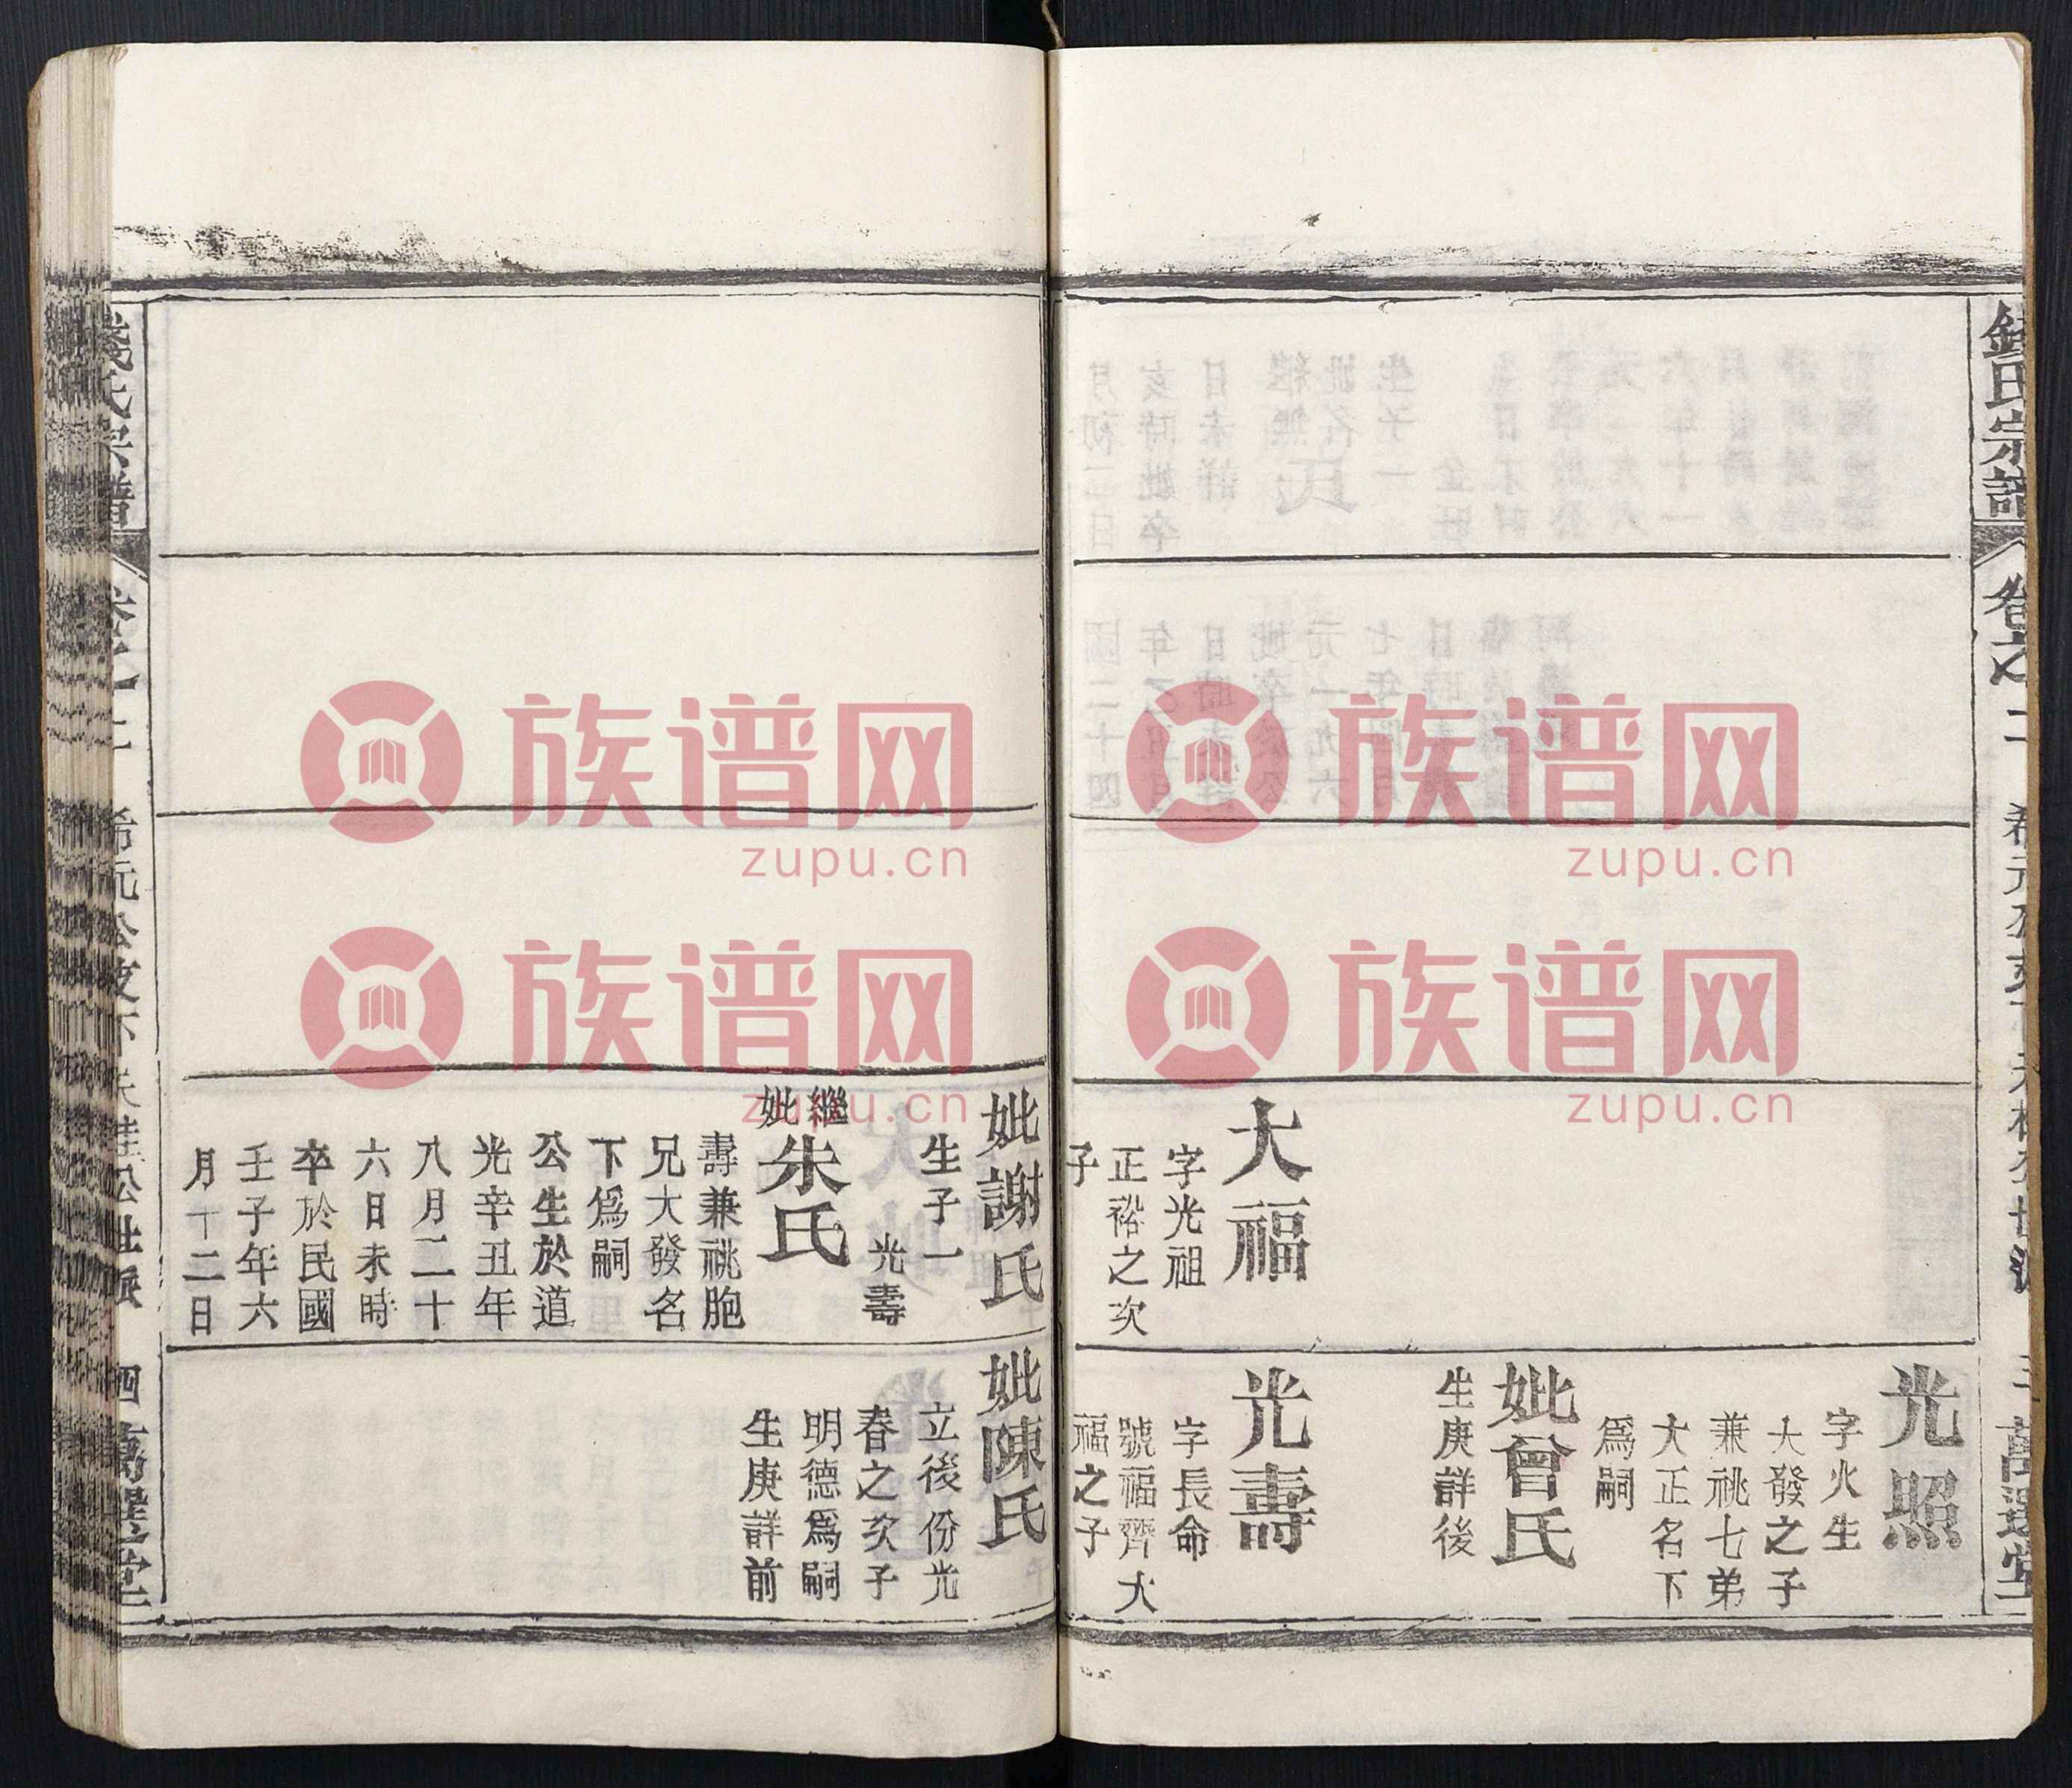 宗譜
卷之二
大福
字光祖
正裕之次
子
光照
字火生
大發之子
兼祧七弟
大正名下
爲嗣
妣曾氏
生庚詳後
光壽
字長命
號福齊大
福之子
妣謝氏
生子一
光壽
繼妣朱氏
壽兼祧胞
兄大發名
下爲嗣
公生於道
光辛丑年
八月二十
六日未時
卒於民國
壬子年六
月十二日
妣陳氏
立後份光
春之次子
明德爲嗣
生庚詳前
公支下
公世派
四
族谱网
zupu.cn
族谱网
zupu.cn
族谱网
zupu.cn
族谱网
zupu.cn